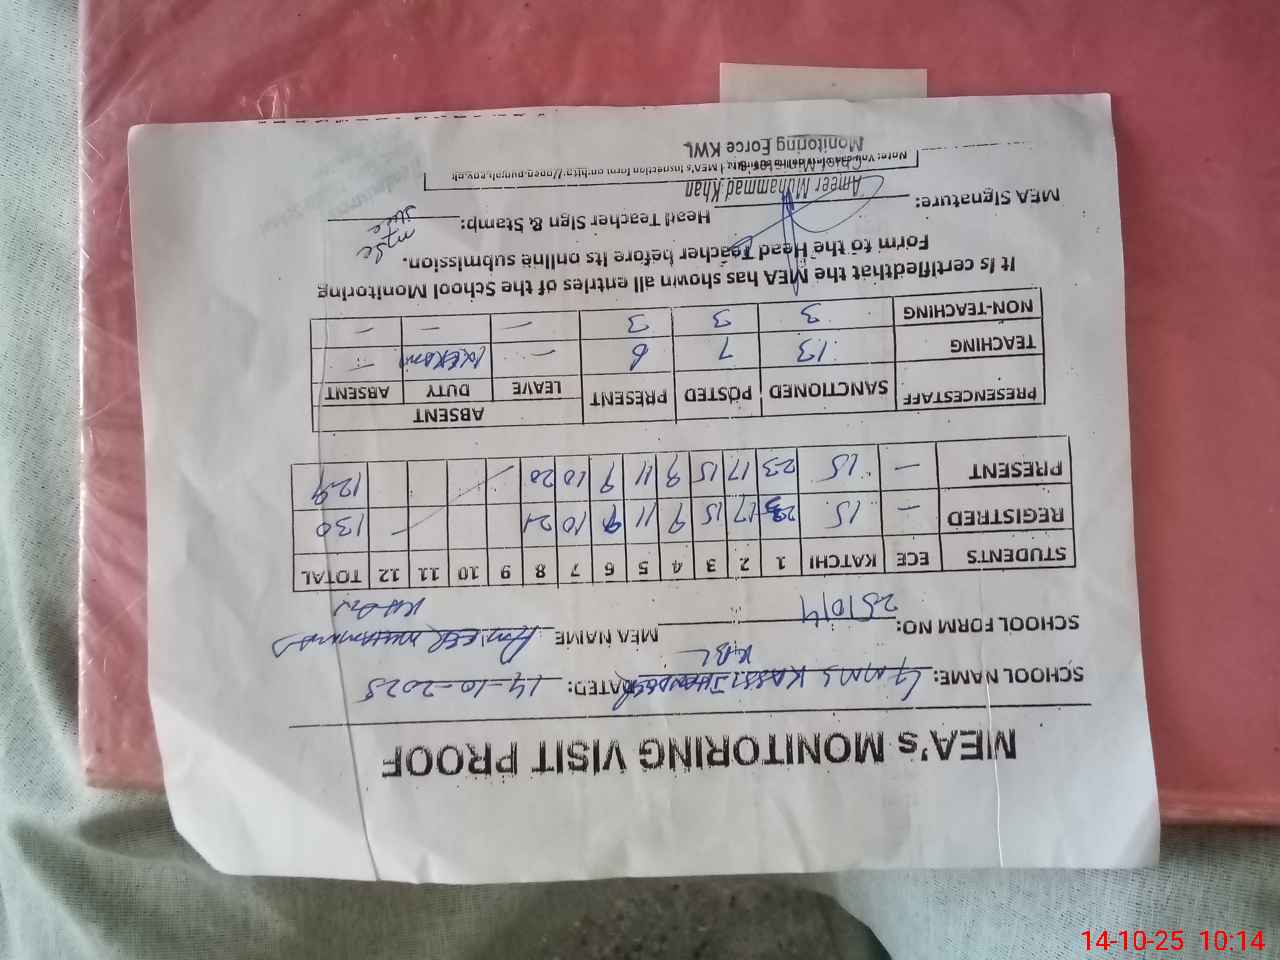 MEA's MONITORING VISIT PROOF
SCHOOL NAME: GMMS KASSI DATED: 14-10-2025
KBL
SCHOOL FORM NO: 251014 MEA NAME Ameer Muhammad
KHAN
STUDENTS ECE KATCHI 1 2 3 4 5 6 7 8 9 10 11 12 TOTAL
REGISTRED — 15 23 17 15 9 11 9 10 21 130
PRESENT — 15 23 17 15 9 11 9 10 20 129
PRESENCESTAFF SANCTIONED POSTED PRESENT ABSENT
LEAVE DUTY ABSENT
TEACHING 13 7 6 — —
NON-TEACHING 3 3 3 — — —
It is certifiedthat the MEA has shown all entries of the School Monitoring
Form to the Head Teacher before its online submission.
MEA Signature: Head Teacher Sign & Stamp:
Ameer Muhammad Khan
MEA's Inspection form on http://open.punjab.gov.pk
Monitoring Force KWL
14-10-25 10:14